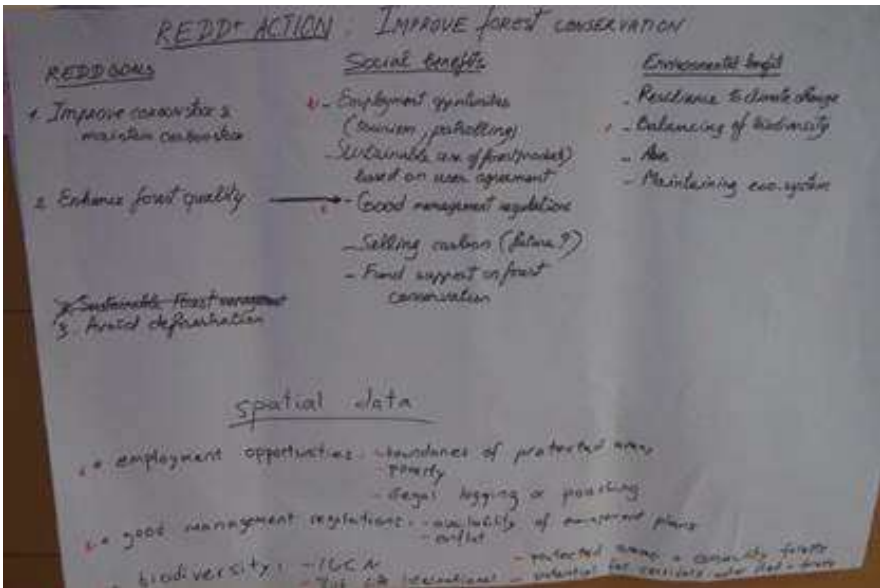 REDD+ ACTION: IMPROVE forest CONSERVATION
REDD GOALS
1. Improve carbon stock &
maintain carbon stock
2. Enhance forest quality
Sustainable Forest management
3. Avoid deforestation
Social benefits
- Employment opportunities
(tourism, patrolling)
- Sustainable use of forest product)
based on user agreement
- Good management regulations
- Selling carbon (future?)
- Fund support on forest
conservation
Environmental benefit
- Resilience to climate change
- Balancing of biodiversity
- Maintaining eco.system
spatial data
employment opportunities: - boundaries of protected areas
- poverty
- illegal logging or poaching
good management regulations: - availability of management plans
- conflict
biodiversity: - IUCN - protected areas & community forests
International - potential for